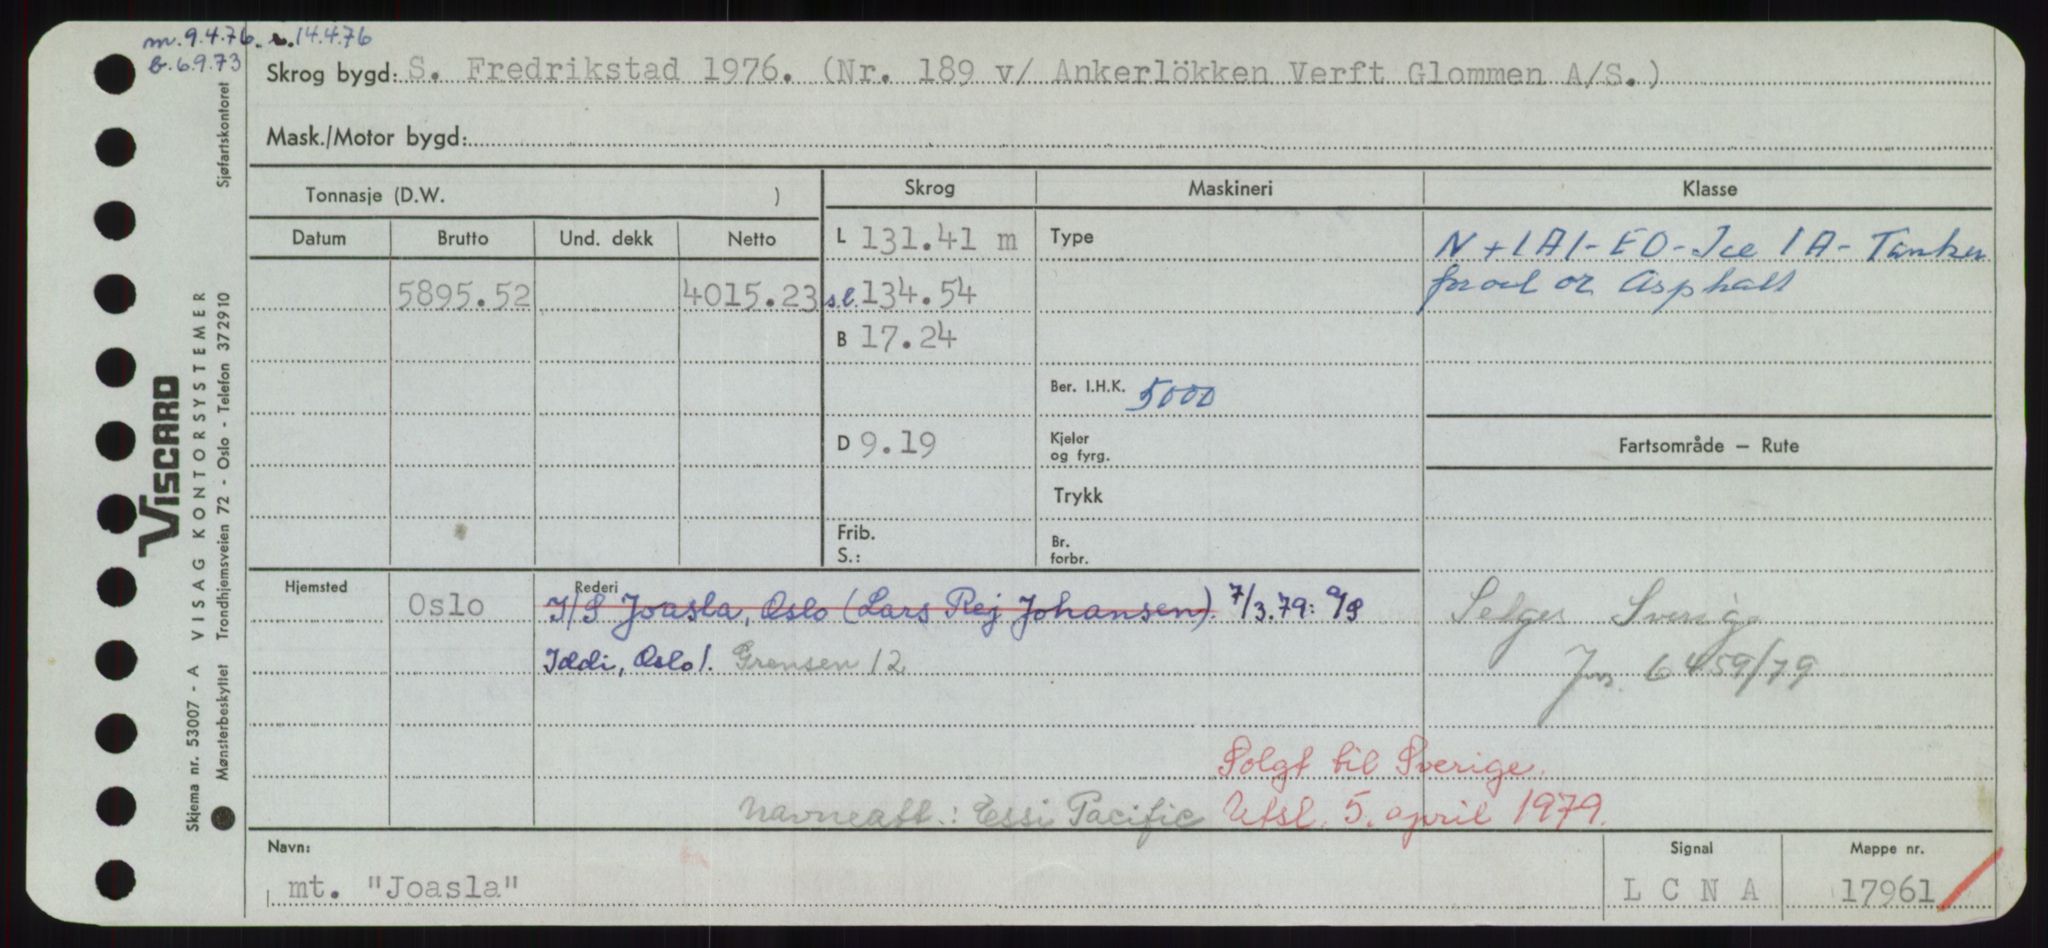 m. 9.4.76. r. 14.4.76
b. 6.9.73
Skrog bygd: S. Fredrikstad 1976. (Nr. 189 v/ Ankerlökken Verft Glommen A/S.)
Mask./Motor bygd:
Tonnasje (D.W. )
Skrog
Maskineri
Klasse
Datum
Brutto
Und. dekk
Netto
5895.52
4015.23
L 131.41 m
s.l. 134.54
B 17.24
D 9.19
Frib.
S.:
Type
Ber. I.H.K. 5000
Kjeler
og fyrg.
Trykk
Br.
forbr.
N +1A1-EO-Ice 1A- Tanker
for oil or Asphalt
Fartsområde – Rute
Selges Sverige
Jnr. 6459/79
Hjemsted
Oslo
Rederi
I/S Joasla, Oslo (Lars Rej Johansen). 7/3.79: A/S
Iddi, Oslo/. Grensen 12
Solgt til Sverige.
Navneatt.: Essi Pacific Utsl. 5. april 1979.
Navn:
mt. "Joasla"
Signal
LCNA
Mappe nr.
17961
VISCARD
VISAG KONTORSYSTEMER
Sjøfartskontoret
Skjema nr. 53007 - A
Mønsterbeskyttet Trondhjemsveien 72 - Oslo - Telefon 372910